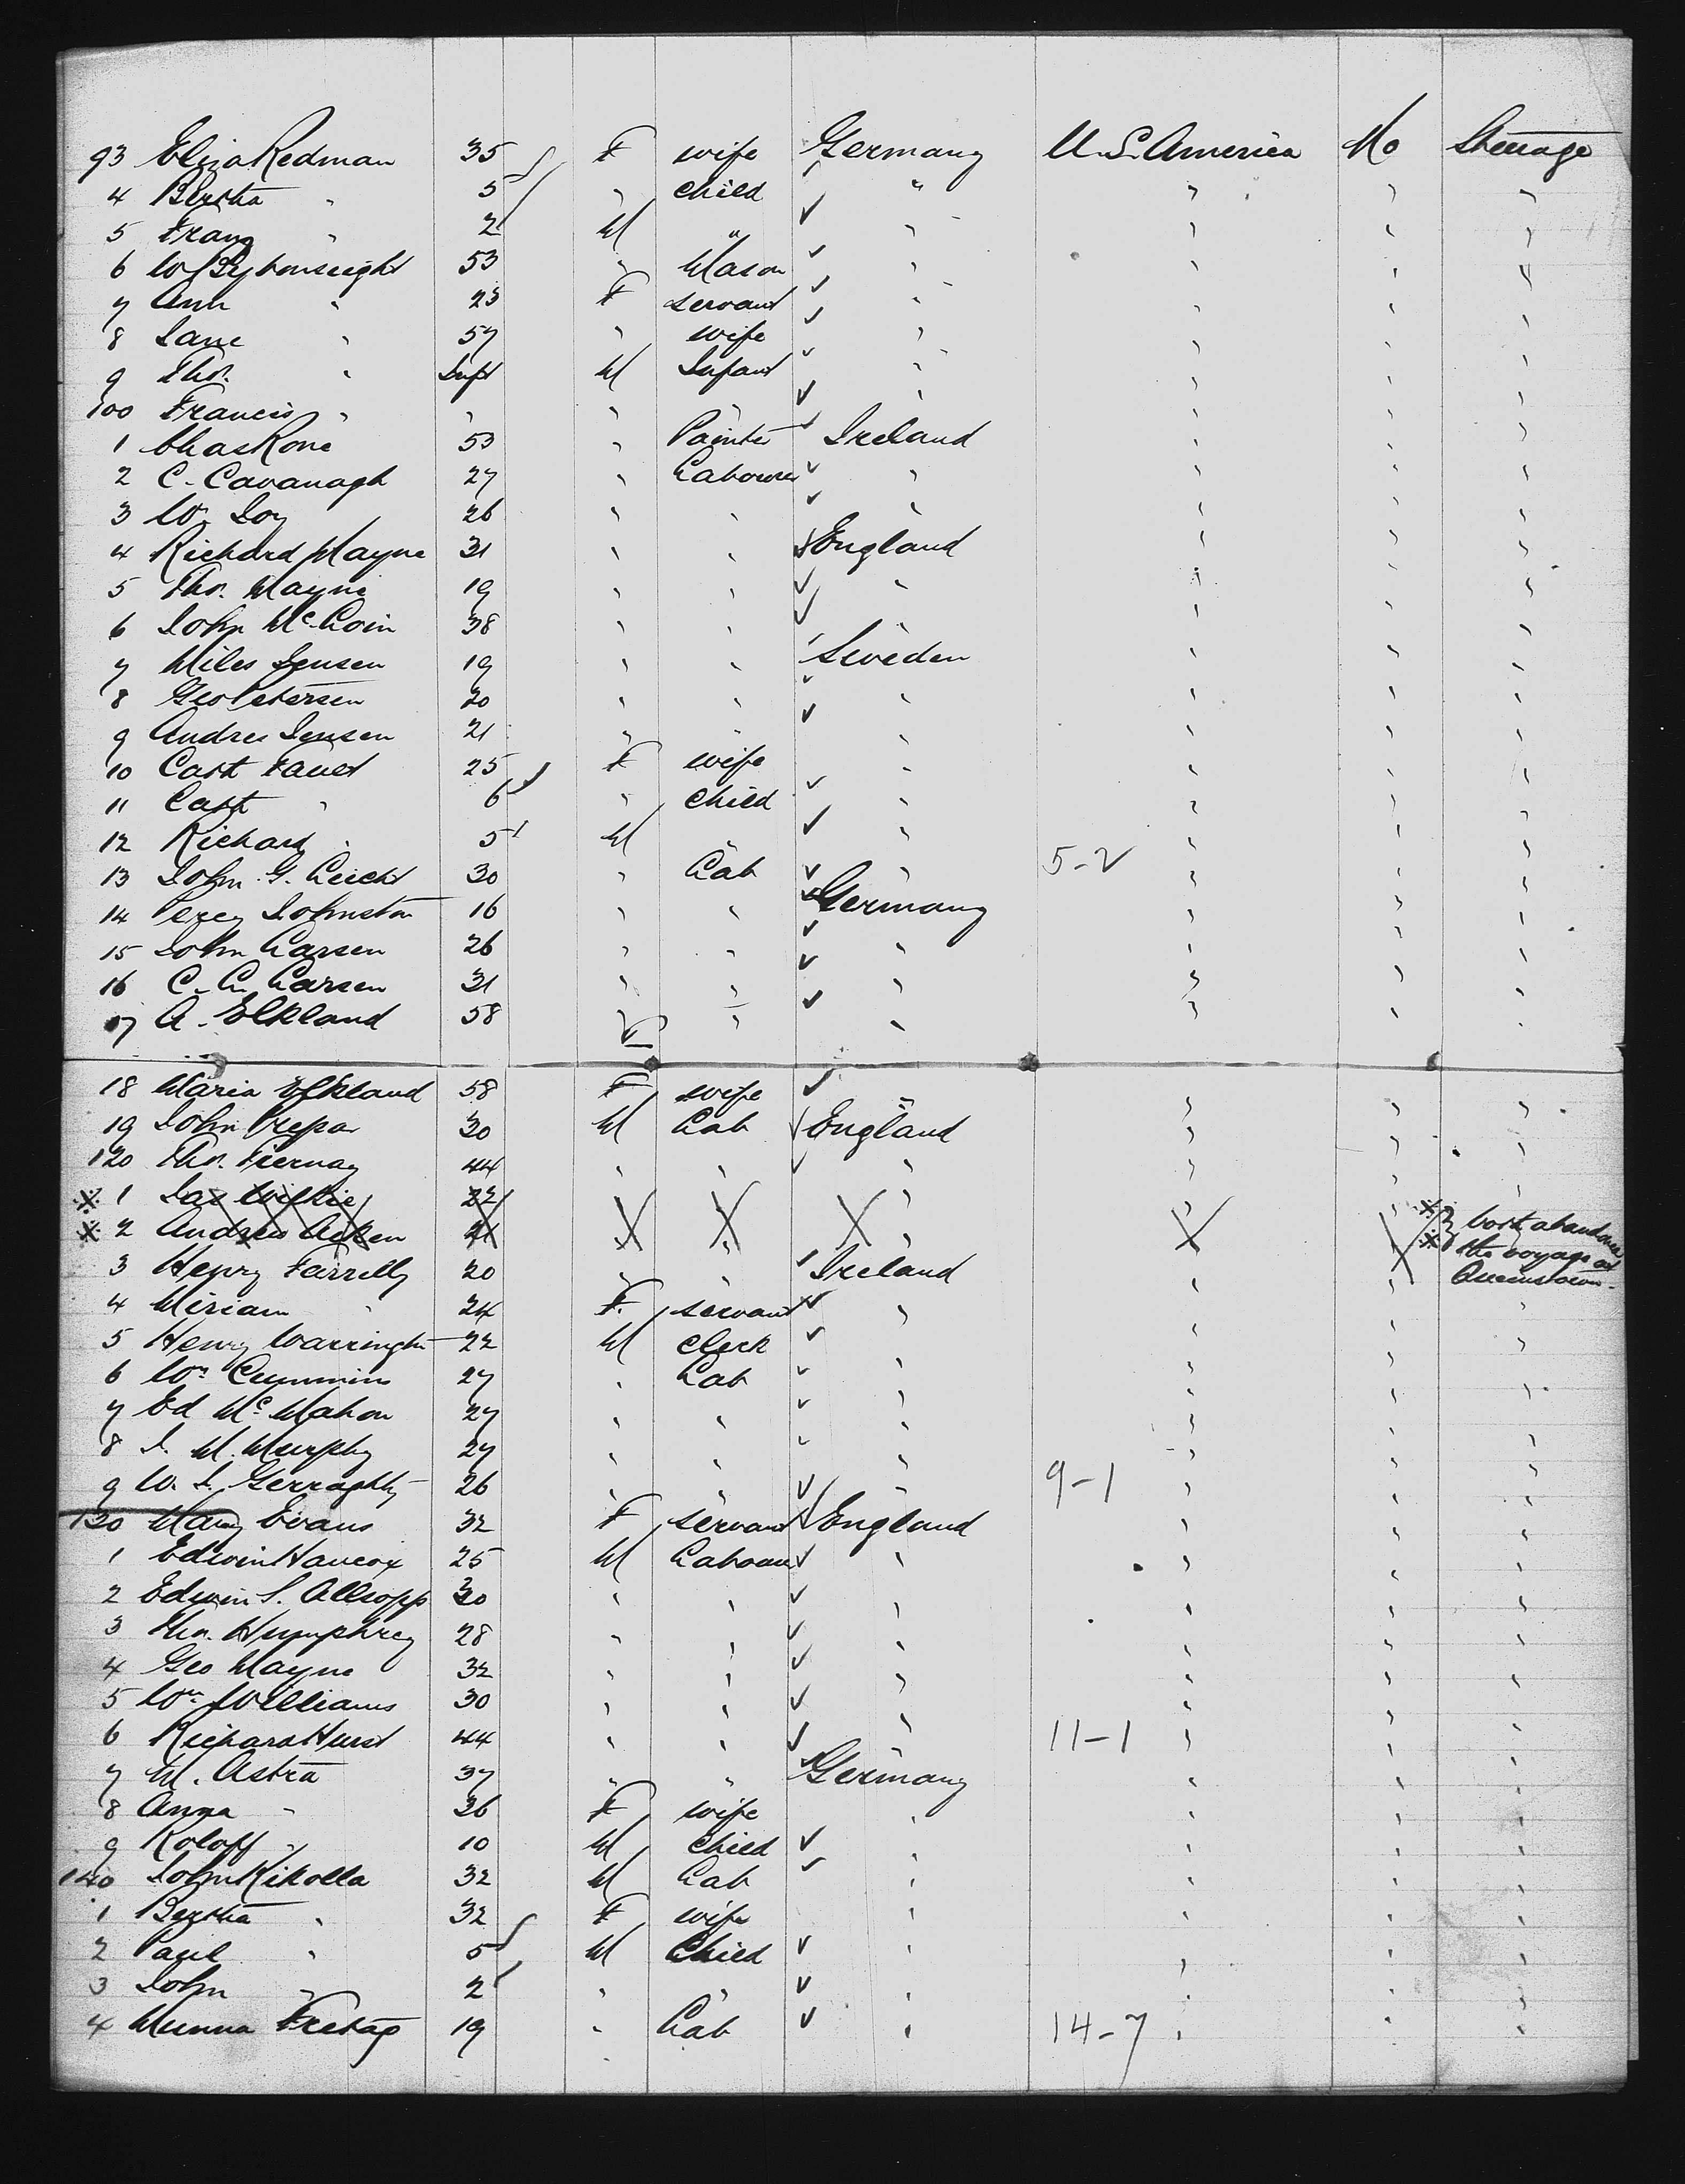 93 Eliza Redman 35 F wife Germany U.S. America No Steerage
4 Bertha " 5 " child " " " "
5 Franz " 2 M " " " " "
6 W 53 " Mason " " " "
7 Ann " 23 F servant " " " "
8 Jane " 57 " wife " " " "
9 Thos. " Inft M Infant " " " "
100 Francis " " " " " " " "
1 Chas Rone 53 " Painter Ireland " " "
2 C. Cavanagh 27 " Labourer " " " "
3 Wm Joy 26 " " " " " "
4 Richard Mayne 31 " " England " " "
5 Thos. Mayne 19 " " " " " "
6 John McLoin 38 " " " " " "
7 Miles Jensen 19 " " Sweden " " "
8 Geo Petersen 20 " " " " " "
9 Andres Jensen 21 " " " " " "
10 Cath Faust 25 F wife " " " "
11 Cath " 6 " child " " " "
12 Richard " 5 M " " " " "
13 John G. Leicht 30 " Lab " 5-2 " " "
14 Percy Johnston 16 " " Germany " " "
15 John Larsen 26 " " " " " "
16 C. A. Larsen 31 " " " " " "
17 A. Elkland 58 " " " " " "
18 Maria Elkland 58 F wife " " " "
19 John Prepar 30 M Lab England " " "
120 Thos. Tiernay 44 " " " " " "
※ 1 Jas Wilkie 22 " " " " " ※ } both abandoned
※ 2 Andrew Aiken 21 " " " " " ※ the voyage at
3 Henry Farrelly 20 " " Ireland " " Queenstown.
4 Miriam " 24 F. servant " " " "
5 Henry Warrington 22 M clerk " " " "
6 Wm Cummins 27 " Lab " " " "
7 Ed McMahon 27 " " " " " "
8 J. M. Murphy 27 " " " " " "
9 W. J. Gerraghty 26 " " " 9-1 " " "
130 Mary Evans 32 F servant England " " "
1 Edwin Hancox 25 M Labourer " " " "
2 Edwin S. Allsopp 30 " " " " " "
3 Thos. Humphrey 28 " " " " " "
4 Geo Mayne 32 " " " " " "
5 Wm Williams 30 " " " " " "
6 Richard Hurst 44 " " " 11-1 " " "
7 M. Astra 37 " " Germany " " "
8 Anna " 26 F wife " " " "
9 Roloff " 10 M child " " " "
140 John Kikolla 32 M Lab " " " "
1 Bertha " 32 F wife " " " "
2 Paul " 5 M Child " " " "
3 John " 2 " " " " " "
4 Minna Freitag 19 " Lab " 14-7 " " "